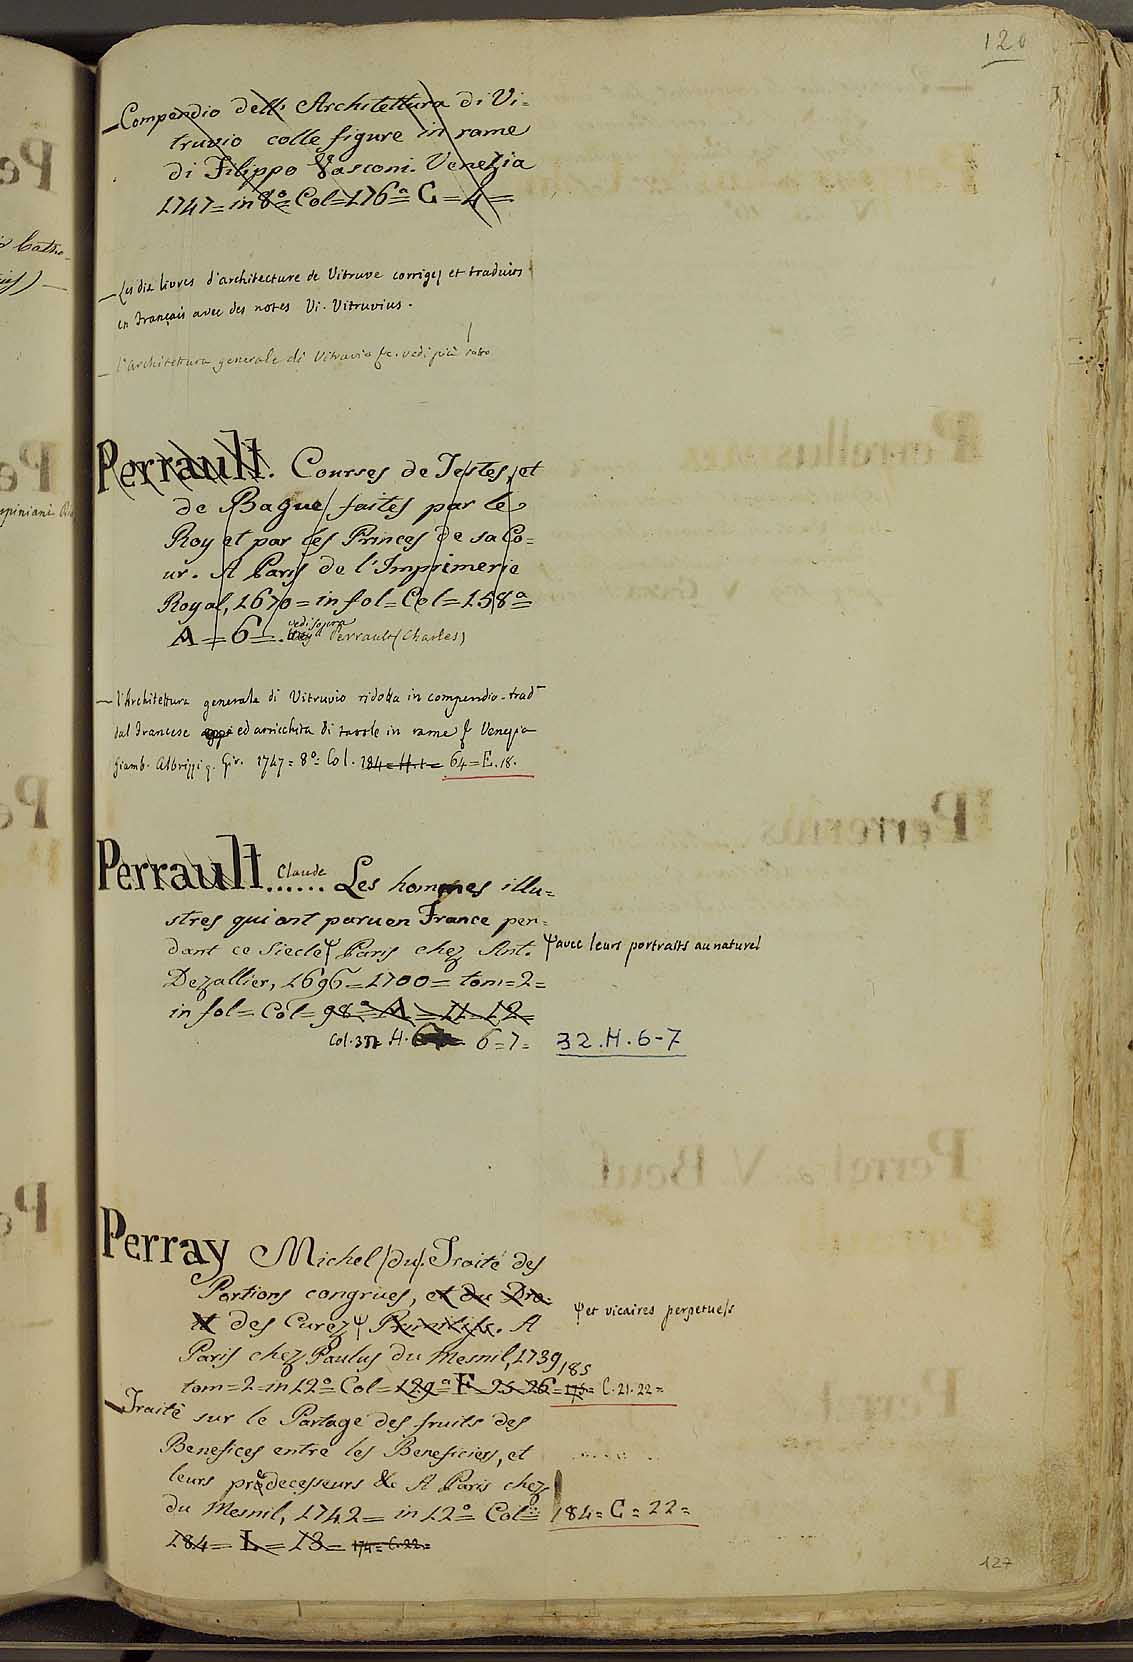 120
Compendio dell' Architettura di Vi=
truvio colle figure in rame
di Filippo Vasconi. Venezia
1747= in 8º= Col=176ª= C=4=
Les dix livres d'architecture de Vitruve corriges et traduits
en Français avec des notes Vi. Vitruvius.
l'architettura generale di Vitruvio &c. vedi più sotto
Perrault. Courses de Testes, et
de Bague faites par le
Roy et par les Princes de sa Co=
ur. A Paris de l'Imprimerie
Royal, 1670= in fol= Col=158ª=
A=6=. vedi sopra
Perrault (Charles)
l'Architettura generale di Vitruvio ridotta in compendio. trad
dal Francese ed arricchita di tavole in rame & Venezia
Giamb. Albrizzi q. Gir. 1747= 8º= Col. 184=H.1= 64=E.18.
Perrault...... Claude Les hommes illu=
stres qui ont paru en France pen=
dant ce Siecle Ψ Paris chez Ant. Ψ avec leurs portraits au naturel
Dezallier, 1696=1700= tom=2=
in fol= Col= 98ª= A=11=12=
Col. 32 H. 6=7= 32.H.6-7
Perray Michel (du). Traité des
Portions congrues, et du Dro=
it des Curez Ψ Primitifs. A Ψ et vicaires perpetuels
Paris chez Paulus du Mesnil, 1739
tom=2=in 12º= Col=129ª= F 25 26 =175= 185 C.21.22=
Traité sur le Partage des fruits des
Benefices entre les Beneficiers, et
leurs prédecesseurs &c A Paris chez
du Mesnil, 1742= in 12º= Col= 184= C=22=
184= L=13= 174= C.22=
127